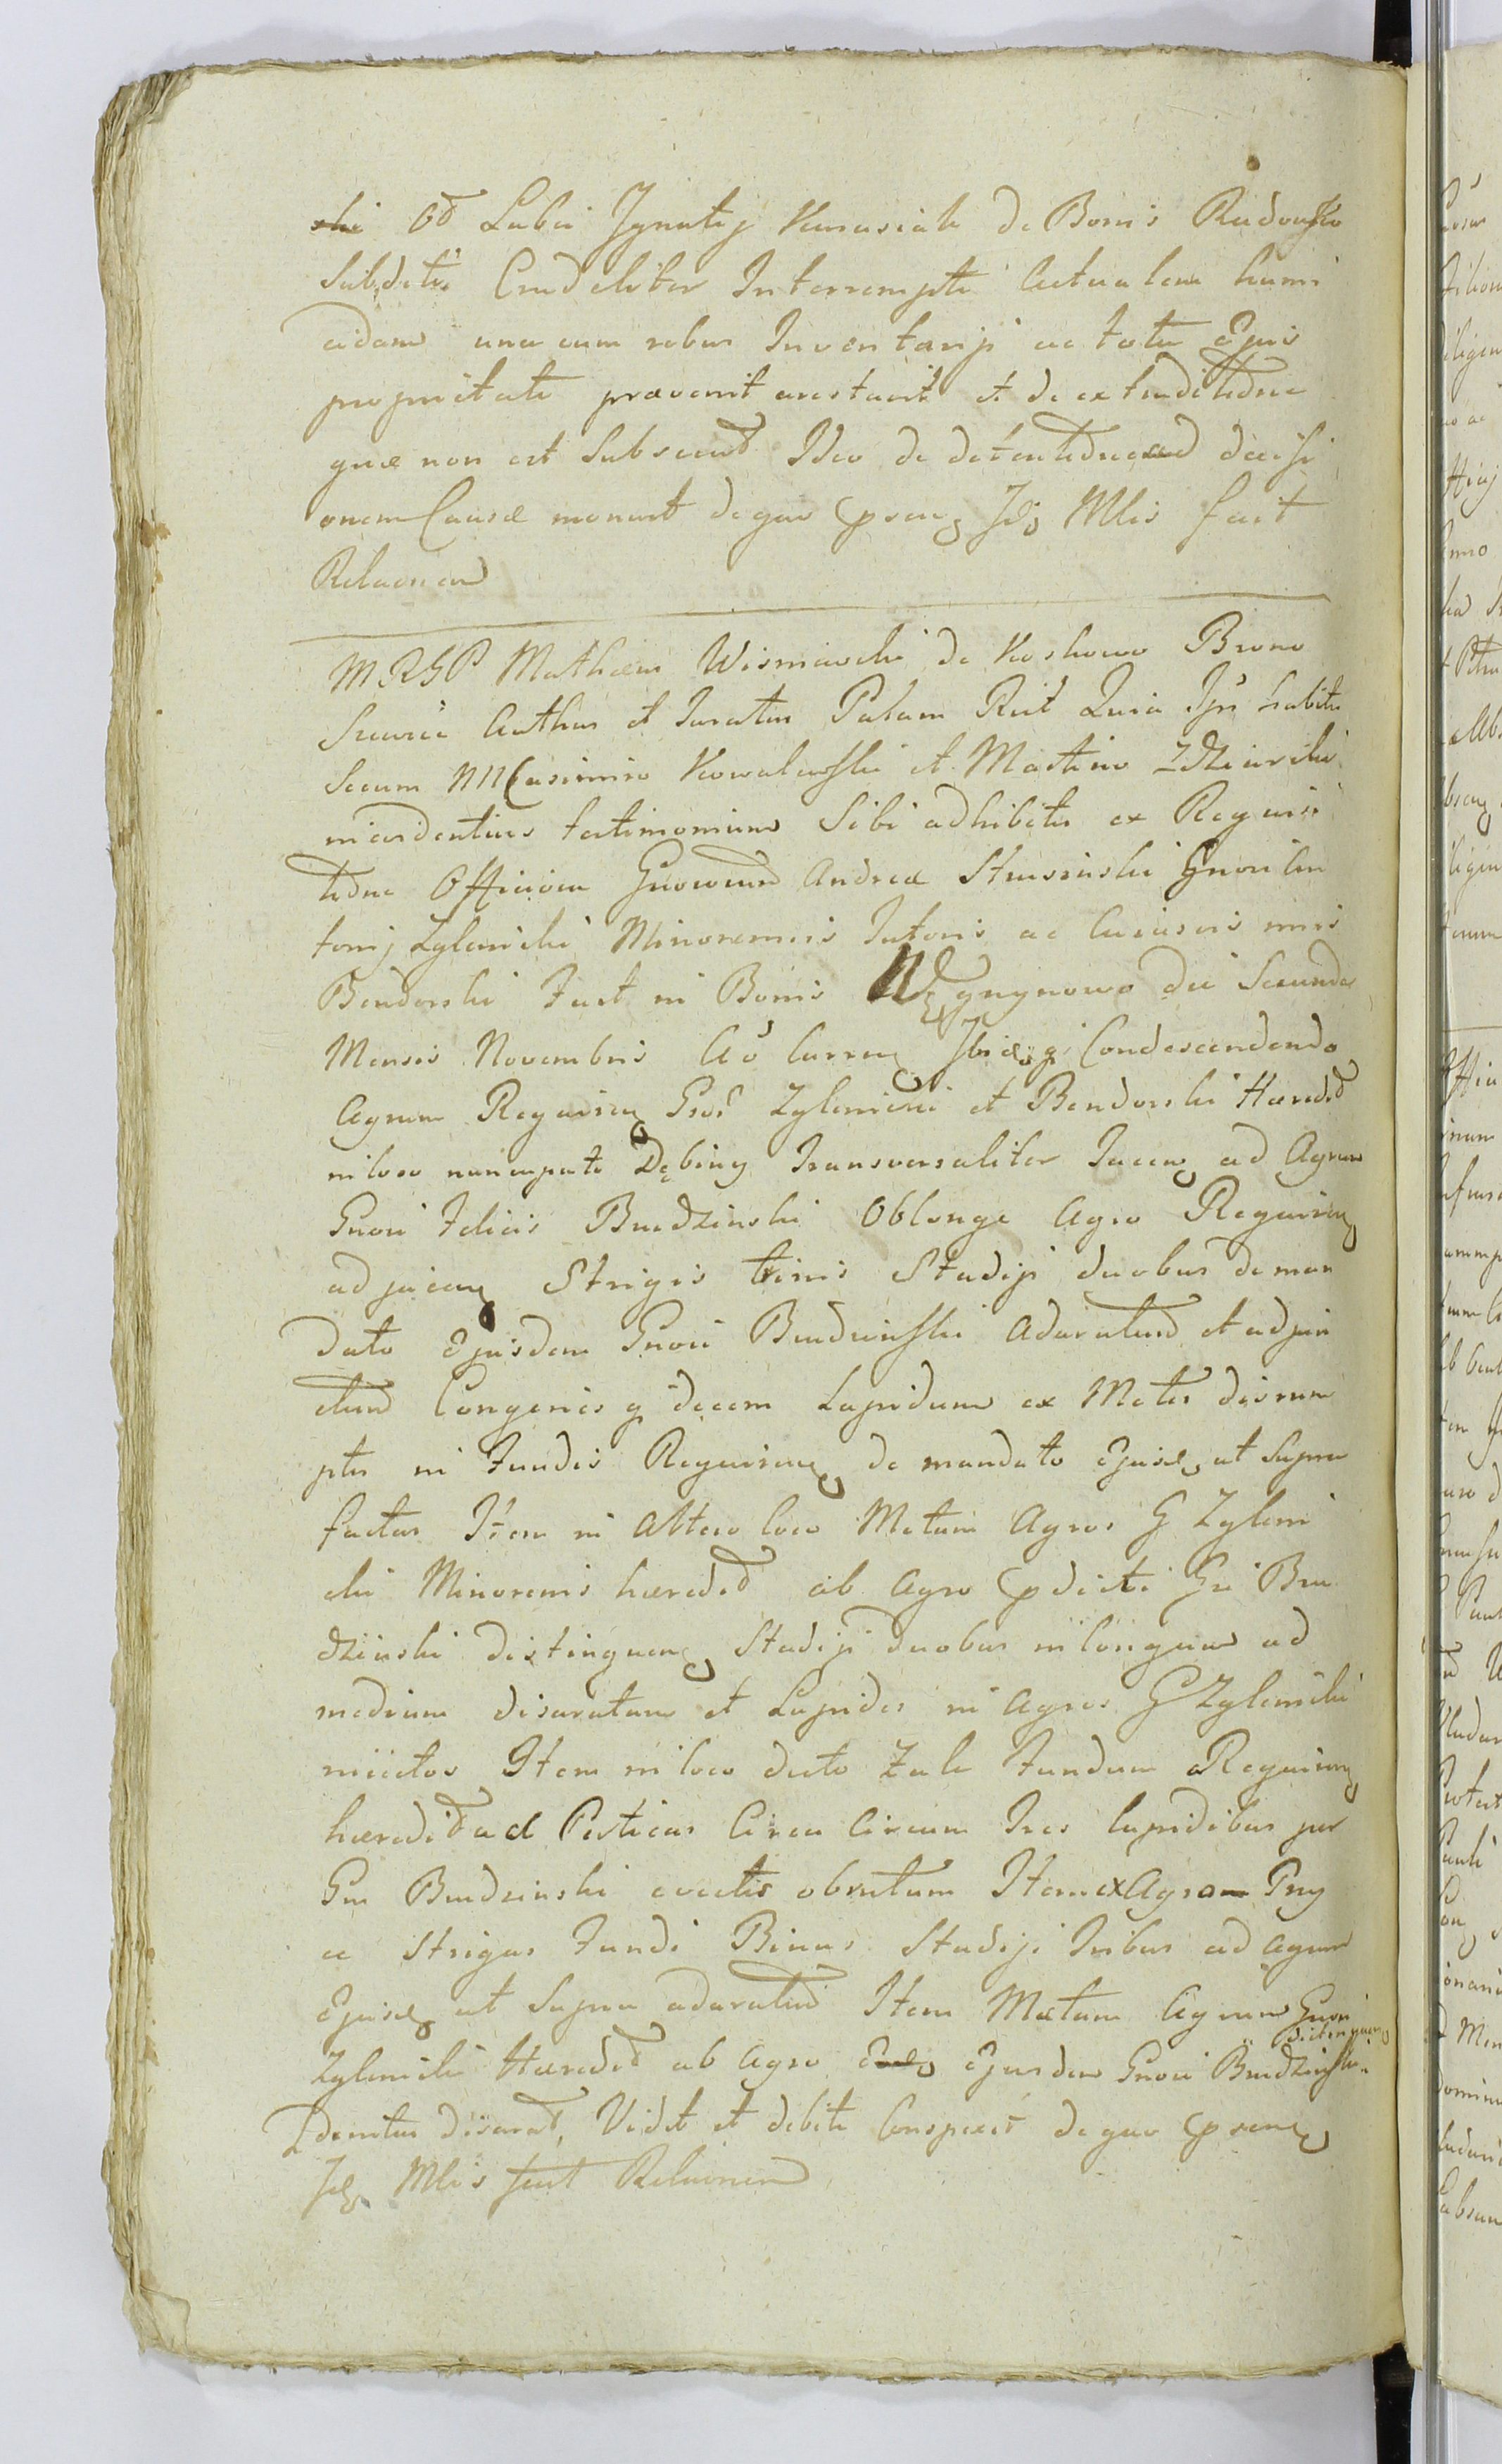 ski Od Labu Ignatij Kurasiak de Bonis Radowsko
Subditi Crudeliter Interrempti Actualem humi
cidam una cum rebus Inventarij ac tota Ejus
proprietate prævenit arestavit et de extraditdne
quæ non est Subsecut Ideo de detentdne ad decisi
onem Causæ monuit de quo præns Idq Mlis fecit
Relaonem
MRGP Mathæus Wismiewski de Koskowo Bruno
Sieurii Authus et Juratus Palam Rtt Quia Ips habitis
Secum NN Casimiro Kowalewski et Martino Zdziarski
incidentius testimonium Sibi adhibitis ex Requisi
tdne Officiosa Gnorum Andreæ Strusinski Gnori An
tonij Zylinicki Minorennis Tutoris ac Cuiusvis
Bendorski Fuit in Bonis die Secunda
Mensis Novembris Aō Curren Ibidq Condescendendo
Agrum Requiren Gnor Zylinicki et Bendorski Hæredit
in loco nuncupato Dębiny Transversaliter Jacen ad Agrum
Gnori Felicis Budzinski Oblonge Agro Requiren
adjacen Strigis trinis Stadiji duobus de man
dato Ejusdem Gnori Budzinski Adaratum et adjun
ctum Congeries q decem Lapidum ex Metis disrum
ptis in Fundis Requiren de mandato Ejusd ut Supra
factas Item in Altero loco Metam Agros G Zylini
cki Minorennis hæredit ab Agro prdicti Gni Bu
dzinski distinguen Stadiji duobus in longum ad
medium disaratam et Lapides in Agros G Zylinicki
miectos Item in loco dicto Zale Fundum Requiren
hæredit ad Perticas Circa Circum Tres lapidibus per
Gm Budzinski evectis obrutum Item ex Agro Przy
ce Strigas Fundi Binas Stadiji Tribus ad agrum
Ejusd ut Supra adaratum Item Metam Agrum Gnori
distinguen
Zylinicki Hæredit ab Agro Ejusdem Gnori Budzinski
Idemitus disarat, Vidit et debite Conspexit de quo præns
Idq Mlis fecit Relaonem